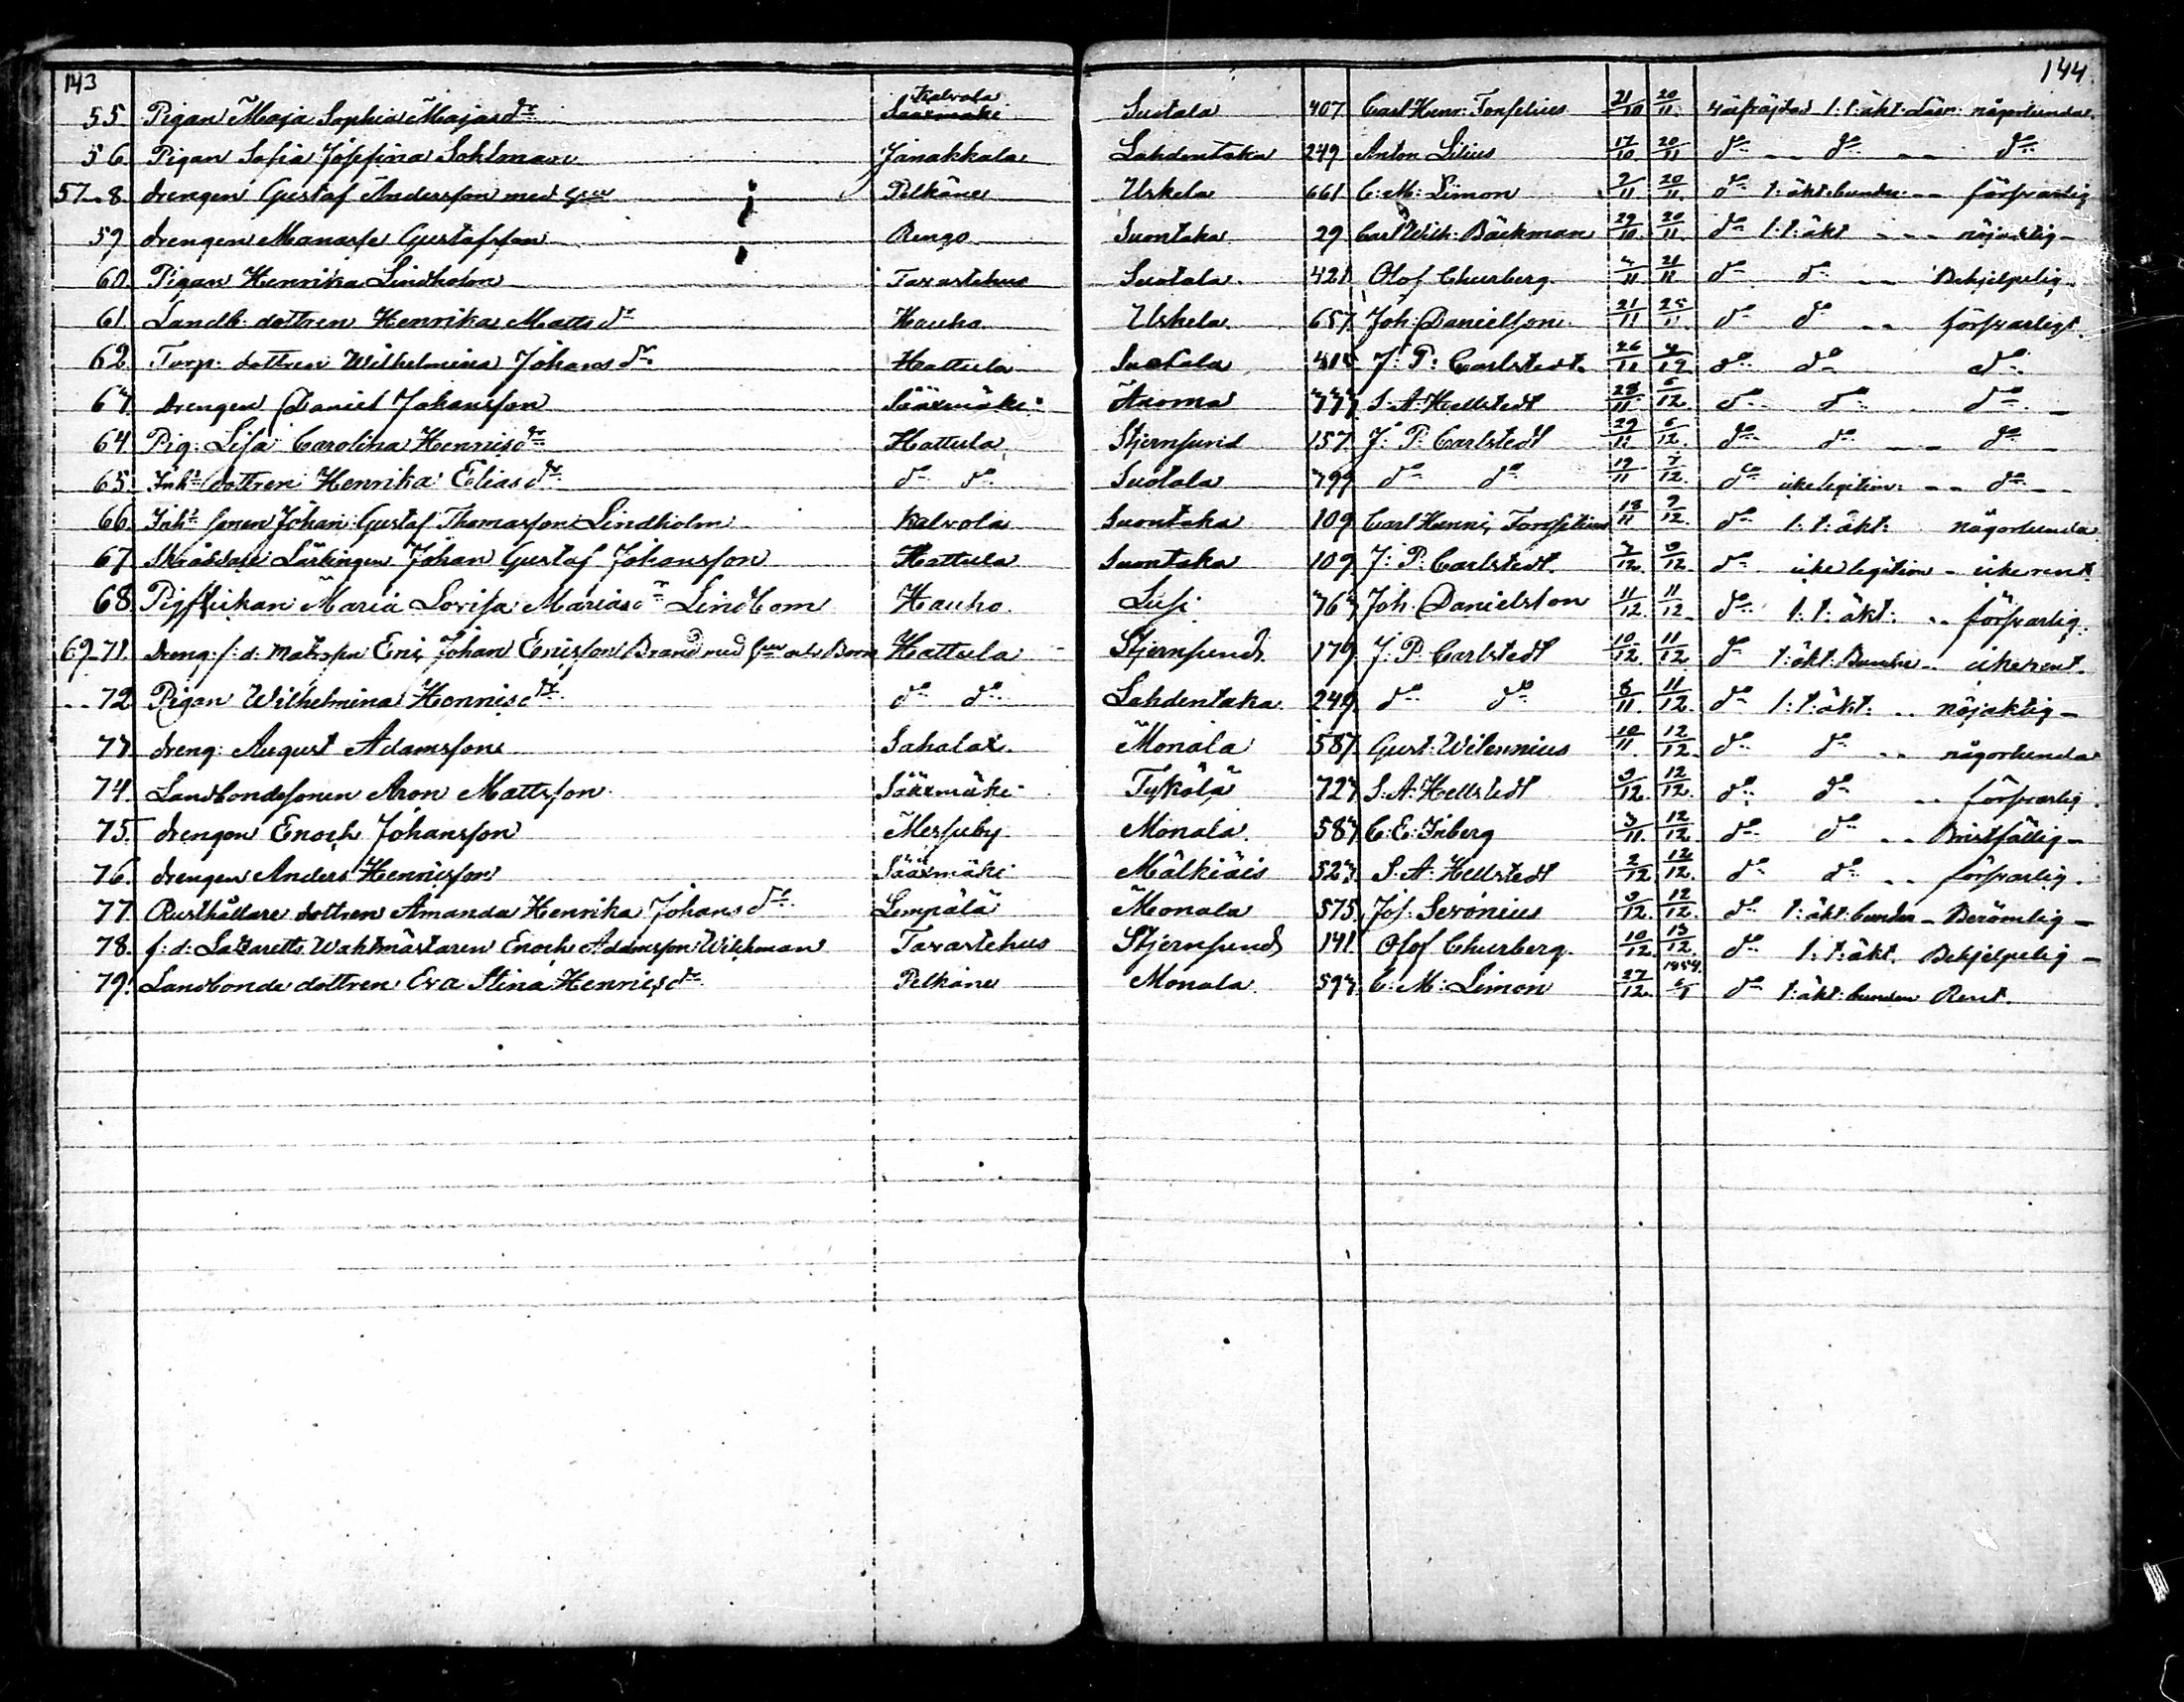 143
144.
55. Pigan Maja Sophia Majasdr Kalvola Sääxmäki Suotala 407 Carl Henr: Forselius 21/10 20/11 t: t: äkt. Läsn: någorlunda
56. Pigan Sofia Josefina Sohlman Janakkala Lahdentaka 249 Anton Lilius 17/10 20/11 do do do
57-8. drengen Gustaf Andersson med Pelkäne Uskela 661 C: M: Limon 7/11 20/11 do t: äkt: bunden försvarlig
59 drengen Manasse Gustafsson Rengo Suontaka 29 Carl Wilh: Bäckman 29/10 20/11 do t: t: äkt nöjaktig
60. Pigan Henrika Lindholm Tavastehus Suotala 421 Olof Churberg 4/11 21/11 do do Behjelpelig
61. Landb: dottren Henrika Mattsdr Hauho Uskela 657 Joh: Danielson 21/11 25/11 do do försvarligt
62. Torp: dottren Wilhelmina Johansdr Hattula Suotala J: P: Carlstedt 26/11 4/12 do do do
63. drengen Daniel Johansson Sääxmäki Äuoma 777 S: A: Hellstedt 28/11 5/12 do do do
64 Pig: Lisa Carolina Henricsdr Hattula Stjernsund 157 J: P: Carlstedt 29/11 5/12 do do do
65. Inhs dottren Henrika Eliasdr do do Suotala 799 do do 19/11 7/12 do icke legitim: do
66. Inhs sonen Johan Gustaf Thomasson Lindholm Kalvola Suontaka 109 Carl Henric Forsselius 18/11 9/12 do t: t: äkt: någorlunda
67 Skräddare Lärlingen Johan Gustaf Johansson Hattula Suontaka 109 J: P: Carlstedt 7/12 9/12 do icke legitim - icke rent
68. Pigflickan Maria Lovisa Mariasdr Lindbom Hauho Lusi 767 Joh: Danielson 11/12 11/12 do t: t: äkt: försvarlig
69-71. dreng: f: d: Matrosen Eric Johan Ericsson Brand med och Barn Hattula Stjernsund 179 J: P: Carlstedt 10/12 11/12 do t: äkt: Bunden icke rent
72 Pigan Wilhelmina Henricsdr do do Lahdentaka 249 do do 8/11 11/12 do t: t: äkt: nöjaktig
73. dreng: August Adamsson Sahalax Monala 587 Gust: Wilennius 10/11 12/12 do do någorlunda
74. Landbondesonen Aron Mattsson Sääxmäki Tykölä 727 S: A: Hellstedt 9/12 12/12 do do försvarlig
75. drengen Enoch Johansson Messuby Monala 587 C: E: Inberg 3/11 12/12 do do Bristfällig
76. drengen Anders Henricsson Sääxmäki Mälkiäis 527 S: A: Hellstedt 2/12 12/12 do do försvarlig
77. Rusthållare dottren Amanda Henrika Johansdr Lempälä Monala 575 Jos: Serónius 9/12 12/12 do t: äkt: bunden - Berömlig
78. f: d: Lazaretts Wahtmästaren Enoch Adamsson Wichman Tavastehus Stjernsund 141 Olof Churberg 10/12 13/12 do t: t: äkt. Behjelpelig
79. Landbonde dottren Eva Stina Henricsdr Pelkäne Monala 597 C: M: Limon 27/12 1854. do t: äkt: bunden Rent.